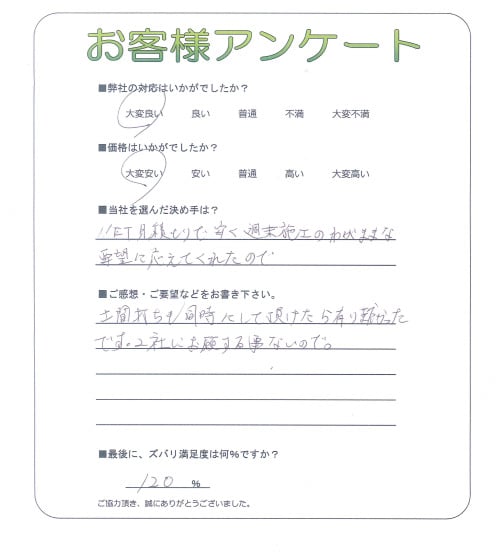 お客様アンケート
■弊社の対応はいかがでしたか？
大変良い 良い 普通 不満 大変不満
■価格はいかがでしたか？
大変安い 安い 普通 高い 大変高い
■当社を選んだ決め手は？
見積もりで、安く週末施工のわがままな
要望に応えてくれたので
■ご感想・ご要望などをお書き下さい。
土間打ちも同時にして頂けたら有り難かった
です。2社にお願する事ないので。
■最後に、ズバリ満足度は何％ですか？
120 %
ご協力頂き、誠にありがとうございました。